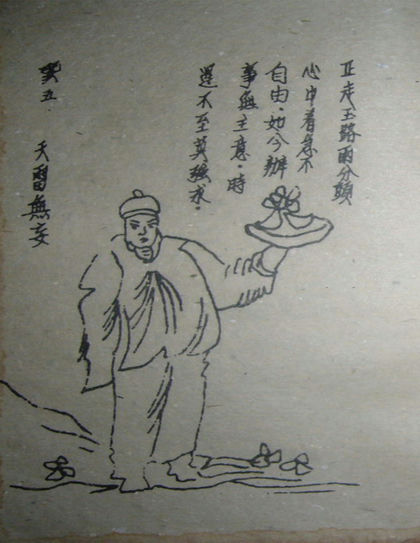 正走玉路兩分頭
心中着急不
自由。如今辦
事無主意。時
運不至莫強求。
五
天雷無妄